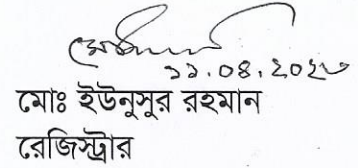 ১১.০৪.২০২৩
মোঃ ইউনুসুর রহমান
রেজিস্ট্রার